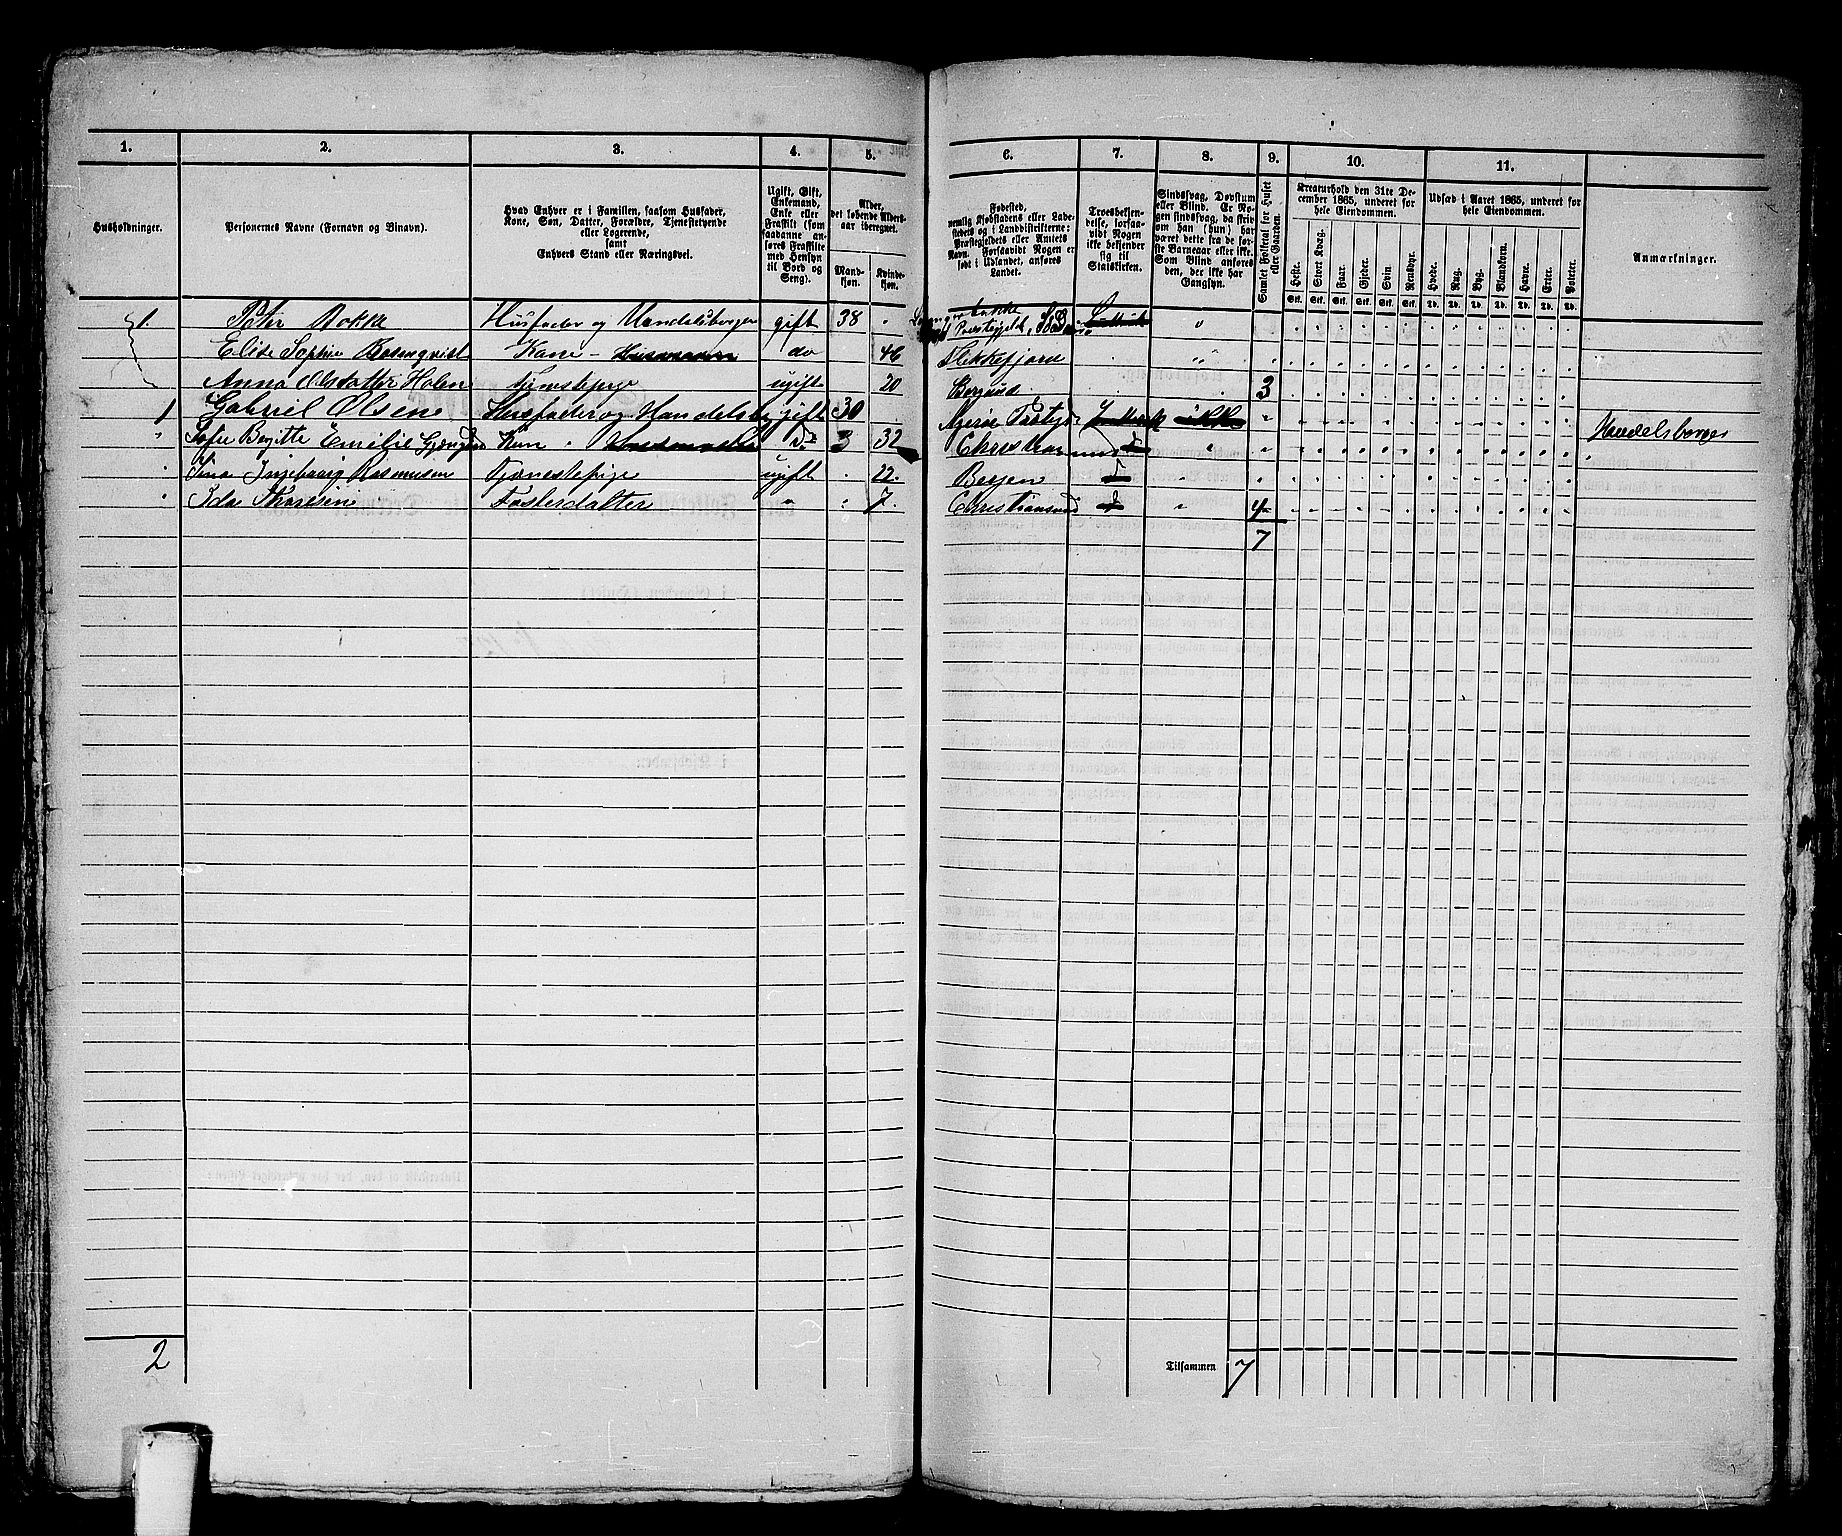 1. 2. 3. 4. 5. 6. 7. 8. 9. 10. 11.
Husholdninger.
Personernes Navne (Fornavn og Binavn).
Hvad Enhver er i Familien, saasom Husfader,
Kone, Søn, Datter, Forældre, Tjenestetyende
eller Logerende,
samt
Enhvers Stand eller Næringsvei.
Ugift, Gift,
Enkemand,
Enke eller
Fraskilt (som
saadanne an-
føres Fraskilte
med Hensyn
til Bord og
Seng).
Alder,
det løbende Alders-
aar iberegnet.
Mand-
kjøn.
Kvinde-
kjøn.
Fødested,
nemlig Kjøbstadens eller Lade-
stedets og i Landdistrikterne:
Præstegjeldets eller Amtets
Navn. Forsaavidt Nogen er
født i Udlandet, anføres
Landet.
Troesbekjen-
delse, forsaa-
vidt Nogen
ikke bekjender
sig til
Statskirken.
Sindssvag, Døvstum
eller Blind. Er No-
gen sindssvag, da skriv
om han (hun) har
været dette fra de før-
ste Barneaar eller ikke.
Som Blind anføres
den, der ikke har
Gangsyn.
Samlet Folketal for Huset
eller Gaarden.
Kreaturhold den 31te De-
cember 1865, underet for
hele Eiendommen.
Heste. Stort Kvæg. Faar. Gjeder. Svin. Rensdyr.
Stk. Stk. Stk. Stk. Stk. Stk.
Udsæd i Aaret 1865, underet for
hele Eiendommen.
Hvede. Rug. Byg. Blandkorn. Havre. Erter. Poteter.
Td. Td. Td. Td. Td. Td. Td.
Anmærkninger.
1. Peter Rokke Husfader og Handelsborger gift 38
Præstegjeld
Elise Sophie Rosenqvist Kone - do 46 Flekkefjord
Anna Olsdatter Holen ugift 20 Borgund 3
1 Gabriel Olsen Husfader og Handelsb gift 30 Handelsborger
Sofie Birgitte Emilie Kone 32 Christiansund
Tina Ingeborg Rasmusen Tjenestepige ugift 22. Bergen
Ida Thoresen Fosterdatter 7. Christiansund 4
7
2
Tilsammen 7